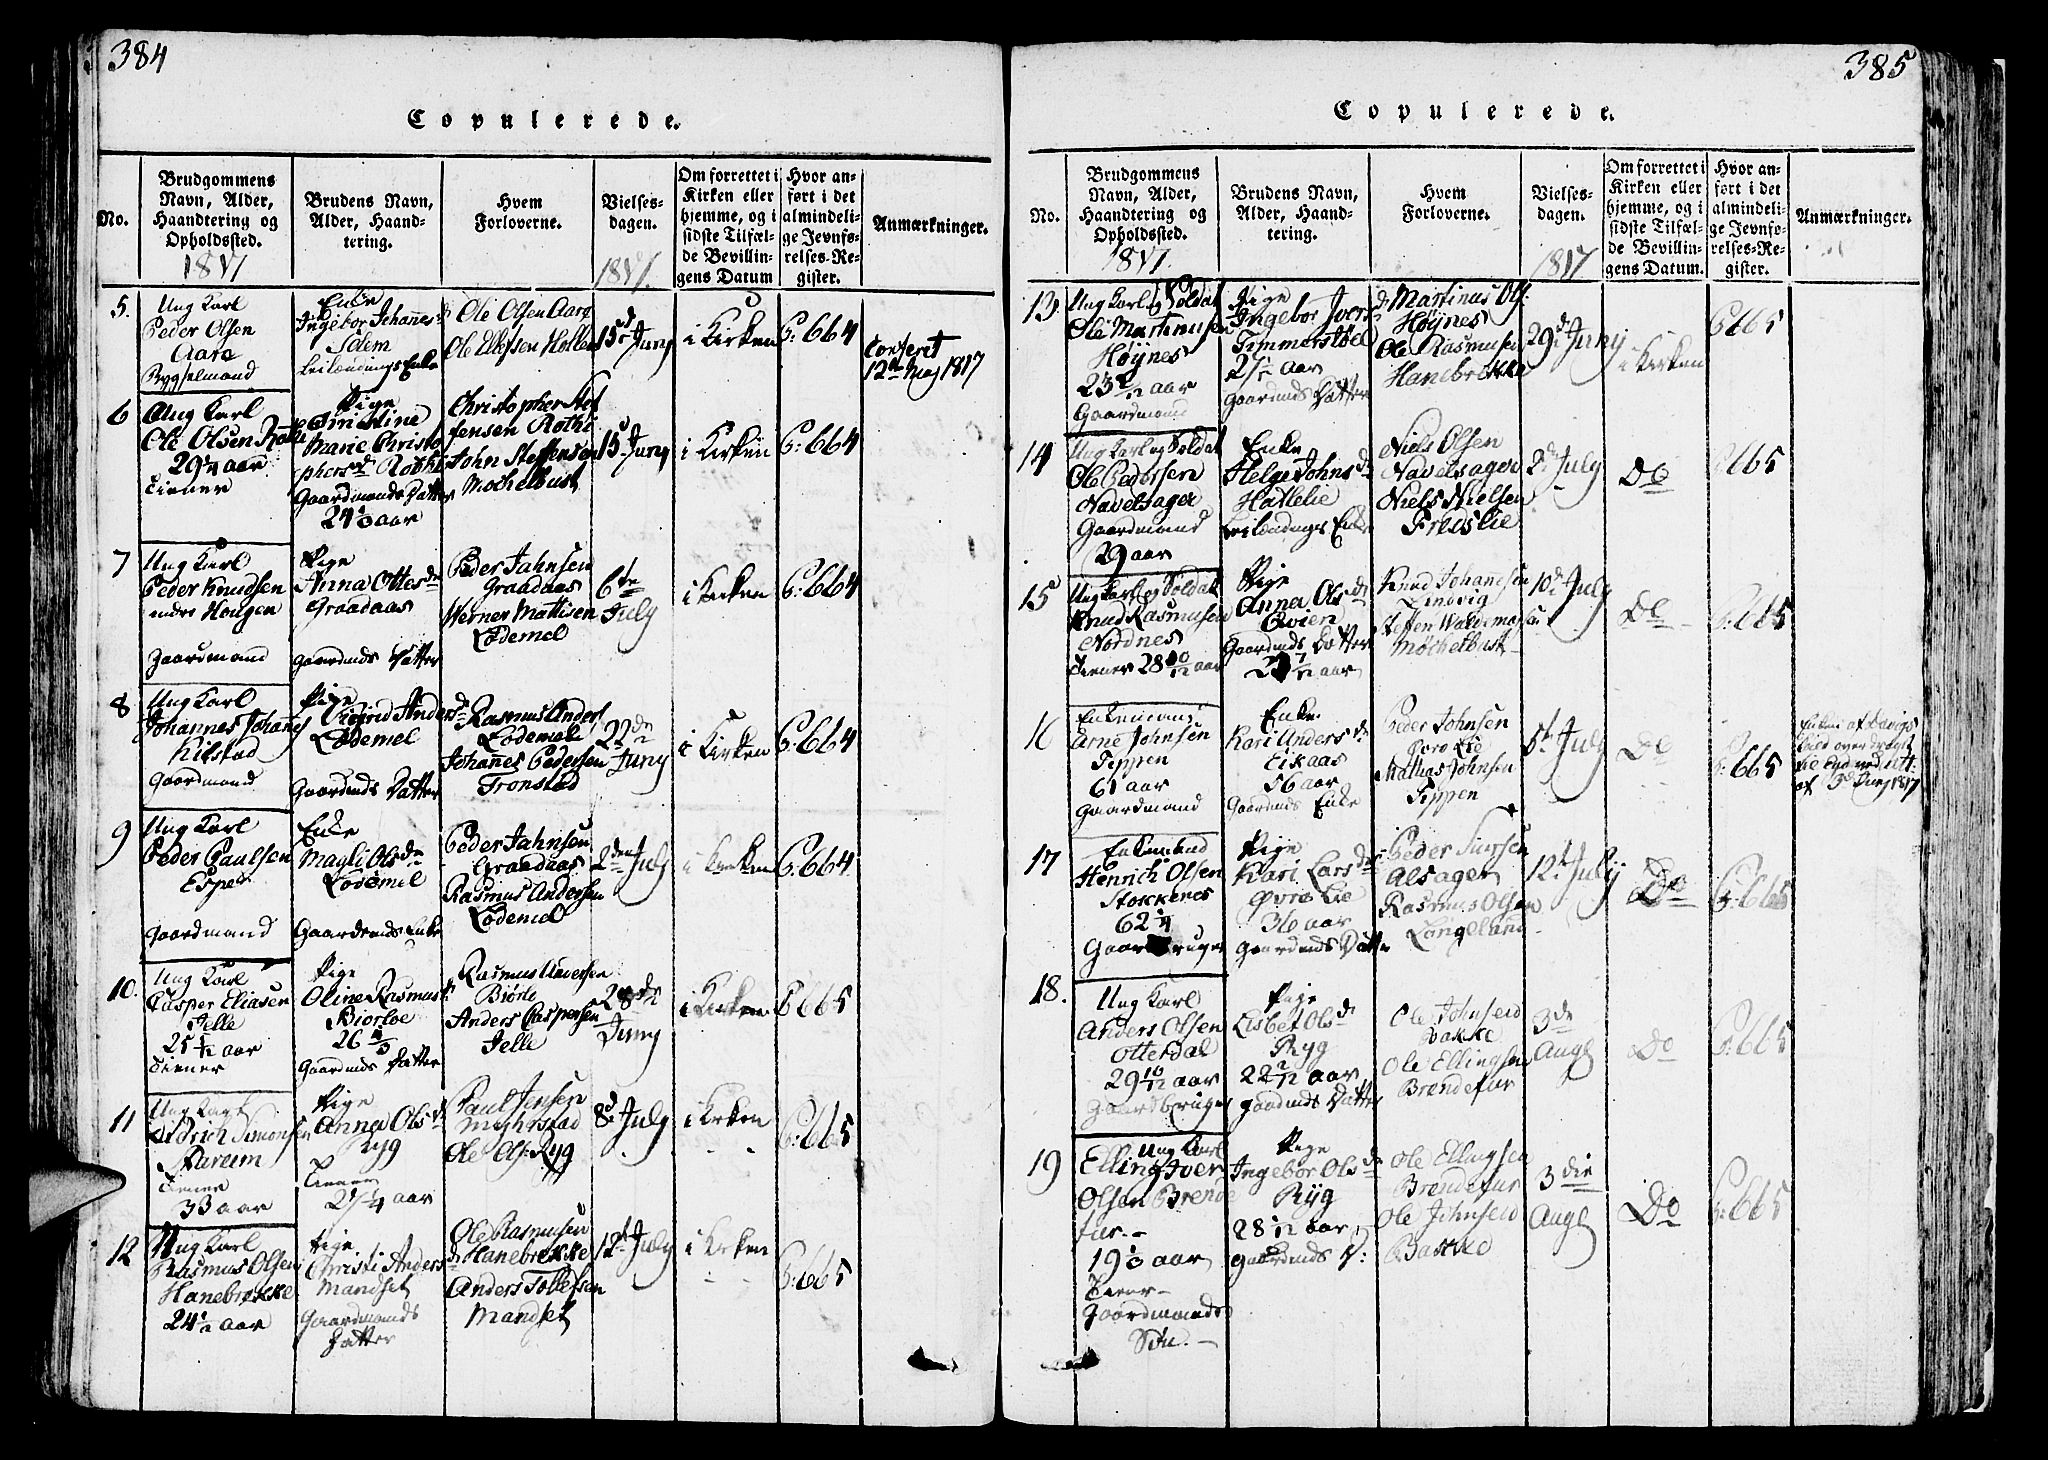 384
Copulerede.
No.
Brudgommens
Navn, Alder,
Haandtering og
Opholdssted.
1817
Brudens Navn,
Alder, Haand-
tering.
Hvem
Forloverne.
Vielses-
dagen.
1817.
Om forrettet i
Kirken eller
hjemme, og i
sidste Tilfæl-
de Bevillin-
gens Datum
Hvor an-
ført i det
almindeli-
ge Jevnfø-
relses-Re-
gister.
Anmærkninger.
5.
Ung Karl
Peder Olsen
Aara
Enke
Ingebor Johannes
Ole Olsen Aara
Ole Ellefsen Hollen
15d Juny
i Kirken
G: 664
12te May 1817
6
Ung Karl
Ole Olsen
29 1/4 aar
Tiener
Pige
Marie Christo
phersd
Gaardmands Datter
24 1/3 aar
Christopher Stef
fensen
John Steffensen
Mochelbust
15d Juny
i Kirken
G: 664
7
Ung Karl
Peder Knudsen
Hougen
gaardmand
Pige
Anna Ottesdr
Graadaas
gaardmds Datter
Peder Jahnsen
Graadaas
Werner Mattisen
Lødemel
6te
July
i Kirken
G: 664
8
Ung Karl
Johannes Johanes
Kilstad
Gaardmand
Pige
Sigrid Anders dr
Lødemel
Gaardmds Datter
Rasmus Anders
Lødemel
Johanes Pedersen
Tronstad
22de
Juny
i Kirken
G: 664
9
Ung Karl
Peder Paulsen
Espe
gaardmand
Enke
Magli Olsdr
Lødemel
Gaardmands Enke
Peder Jahnsen
Graadaas
Rasmus Andersen
Lødemel
2den July
i Kirken
G: 664
10.
Ung Karl
Casper Eliasen
Jelle
25 5/12 aar
Tiener
Pige
Oline Rasmus
Biorloe
26
Gaardmds Datter
Rasmus Andersen
Biørlo
Anders Caspersen
Jelle
28de
Juny
i Kirken
G: 665
11
Ung Karl
Didrich Simonsen
Aareim
Tiener
33 aar
Pige
Anna Olsd
Ryg
Tiener
27 1/4 aar
Paul Jensen
Myhrstad
Ole Ols: Ryg
8d July
i Kirken
G: 665
12
Ung Karl
Rasmus Olsen
Hanebrekke
24 1/2 aar
Pige
Christi Anders dr
Mandset
Gaardmands
Datter
Ole Rasmusen
Hanebrekke
Anders Tollefsen
Mandset
12t July
i Kirken
G: 665
385
Copulerede.
No.
Brudgommens
Navn, Alder,
Haandtering og
Opholdssted.
1817.
Brudens Navn,
Alder, Haand-
tering.
Hvem
Forloverne.
Vielses-
dagen.
1817
Om forrettet i
Kirken eller
hjemme, og i
sidste Tilfæl-
de Bevillin-
gens Datum.
Hvor an-
ført i det
almindeli-
ge Jevnfø-
relses-Re-
gister.
Anmærkninger.
13.
Ung Karl og Soldat
Ole Martinusen
Høynes
aar
Gaardmand
Pige
Ingebor Ivers d
Timmerstøel
aar
Gaardmds Datter
Martinus Ols:
Høynes
Ole Rasmusen
Hanebrekke
29d Juny
i Kirken
G665
14
Ung Karl og Soldat
Ole Pedersen
Navelsager
Gaardmand
29 aar
Enke
Helge Johns dr
Hatlelie
Leilændings Enke
Niels Olsen
Navelsager
Niels Nielsen
Fredslie
2de July
Do
G665
15
Ung Karl og Soldat
Knud Rasmusen
Nordnes
Tiener 28 10/12 aar
Pige
Anna Ols dr
Qvien
Gaardmds Datter
Knud Johansen
Lindvig
Steffen Waldemar
Møchelbust
10d July
Do
G: 665
16
Enkemand
Arne Johnsen
Seppen
61 aar
Gaardmand
Enke
Kari Anders dr
Eikaas
56 aar
Gaardmds Enke
Peder Johnsen
Øvre Lie
Mathias Johnsen
Seppen
5t July
Do
G: 665
af 3d Juny 1817
17
Enkemand
Henrich Olsen
Stokkenes
62 1/4
Gaardbruger
Pige
Kari Lars dr
Øvre Lie
36 aar
Gaardmds Datter
Peder Siursen
Alsager
Rasmus Olsen
Langeland
12t July
Do
G: 665
18.
Ung Karl
Anders Olsen
Otterdal
29 10/12 aar
Gaardbruger
Pige
Lisbet Olsd
Ryg
22 2/12 aar
gaardmds Datter
Ole Johnsen
Bakke
Ole Ellingsen
Brendefur
3de
Augt
Do
G: 665
19
Ung Karl
Elling Iver
Olsen Brende
fur
19 1/3 aar
Tiener
Gaardmands
Søn.
Pige
Ingebor Olsd
Ryg
28 1/12 aar
gaardmds D:
Ole Ellingsen
Brendefur
Ole Johnsen
Bakke
3die
Augt
Do
G: 665